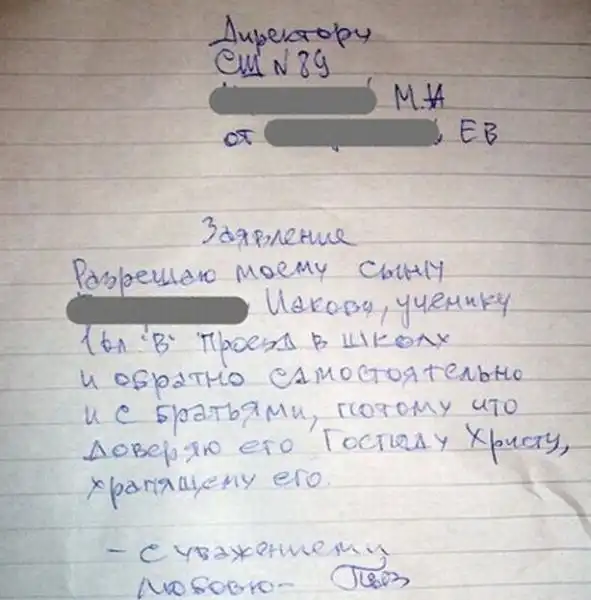 Директору
СШ N 89
М.И
от ЕВ
Заявление
Разрешаю моему сыну
Иакову, ученику
1 кл "В" проезд в школу
и обратно самостоятельно
и с братьями, потому что
доверяю его Господу Христу,
хранящему его.
- с уважением и
любовью -